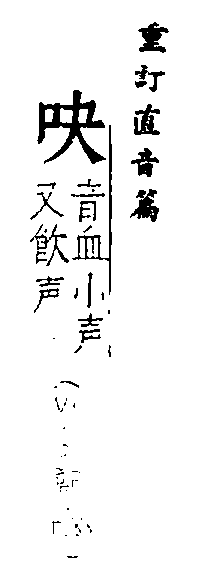 重訂直音篇
吷
音血小声
又飲声